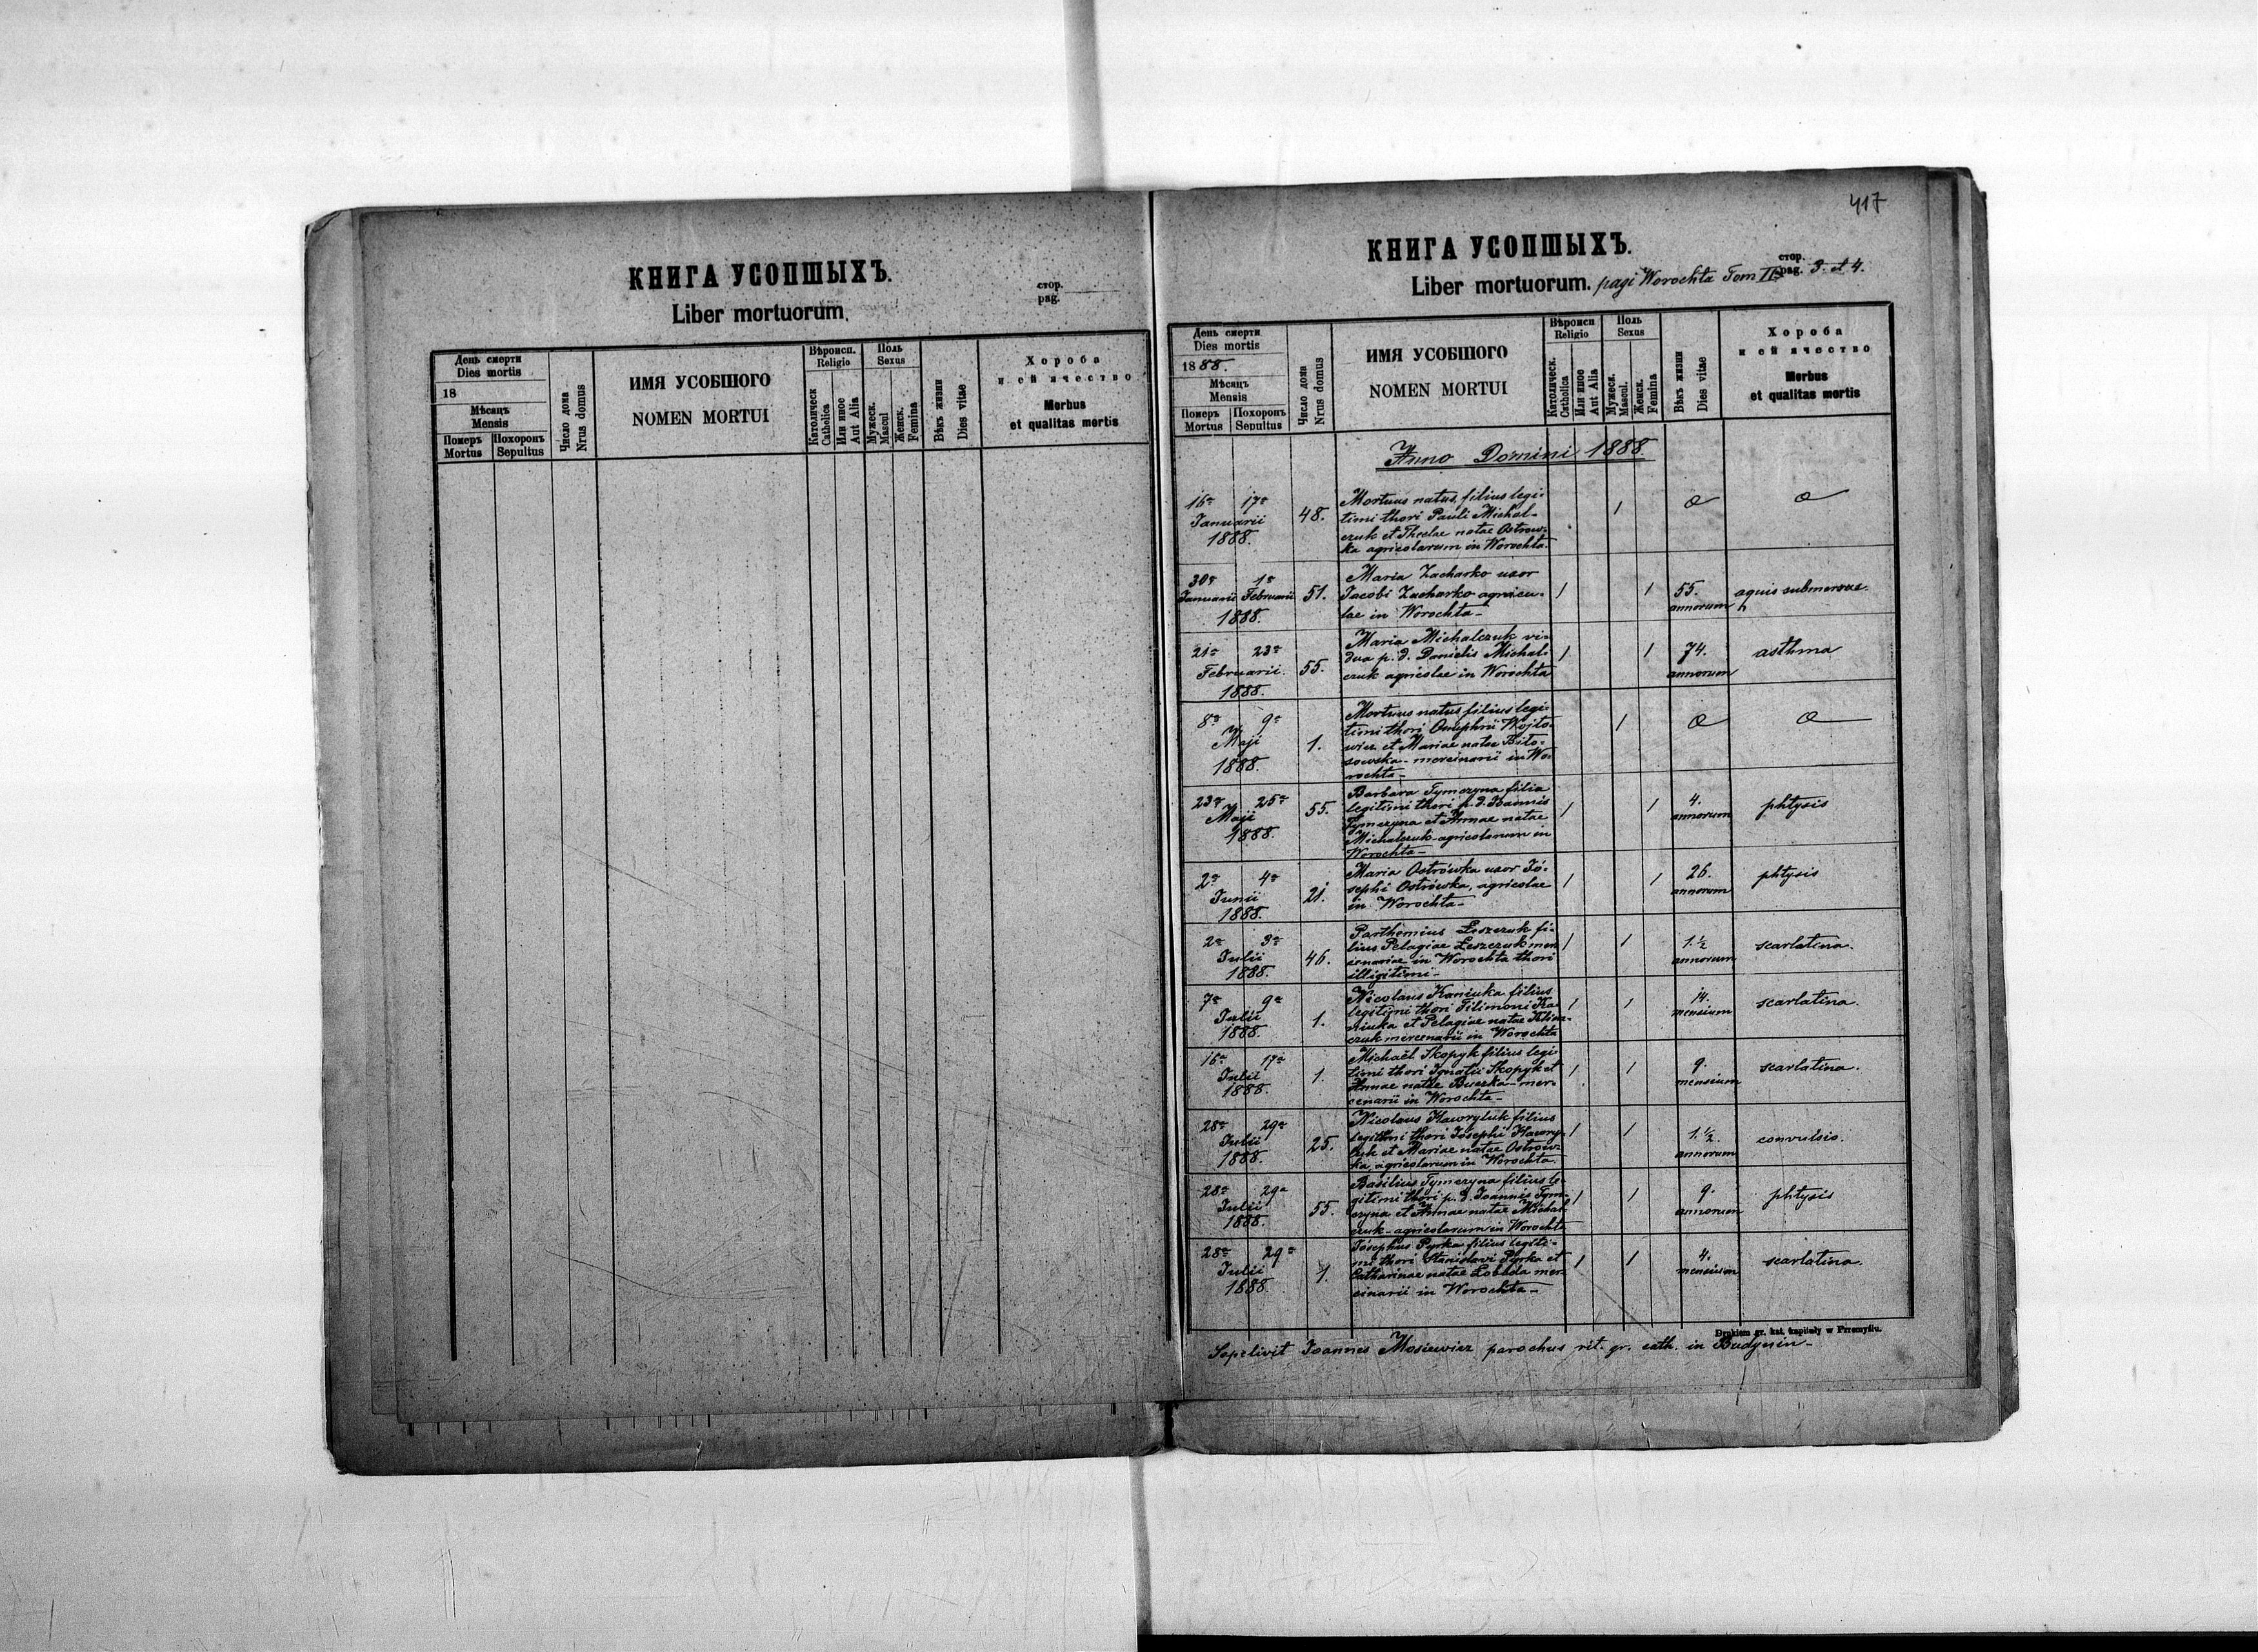 КНИГА УСОПШЫХЪ.
Liber mortuorum.
стор.
pag.
День смерти
Dies mortis
18
Мѣсяцъ
Mensis
Померъ
Mortus
Похоронъ
Sepultus
Число дома
Nrus domus
ИМЯ УСОБШОГО
NOMEN MORTUI
Вѣроисп.
Religio
Католическ
Catholica
Или иное
Aut Alia
Поль
Sexus
Мужеск.
Mascul
Женск.
Femina
Вѣкъ жизни
Dies vitae
Хороба
и ей ячество
Morbus
et qualitas mortis
417
КНИГА УСОПШЫХЪ.
Liber mortuorum. pagi Worochta Tom II
стор.
pag. 3. et 4.
День смерти
Dies mortis
1888.
Мѣсяцъ
Mensis
Померъ
Mortus
Похоронъ
Sepultus
Число дома
Nrus domus
ИМЯ УСОБШОГО
NOMEN MORTUI
Вѣроисп
Religio
Католическ.
Catholica
Или иное
Aut Alia
Поль
Sexus
Мужеск.
Mascul.
Женск.
Femina
Вѣкъ жизни
Dies vitae
Хороба
и ей ячество
Morbus
et qualitas mortis
Anno Domini 1888
16a 17a
Januarii
1888.
48.
Mortuus natus, filius legi-
timi thori Pauli Michal-
czuk et Theclae natae Ostrow-
ka agricolarum in Worochta.
1
30a 1a
Januarii Februarii
1888.
51.
Maria Zacharko uxor
Jacobi Zacharko agricu-
lae in Worochta-
1 1
55.
annorum
aquis submersae.
21a 23a
Februarii.
1888.
55.
Maria Michalczuk vi-
dua p. d. Danielis Michal-
czuk agricolae in Worochta
1 1
74.
annorum
asthma
8a 9a
Maji
1888.
1.
Mortuus natus filius legi-
timi thori Onuphrii Wojto-
wicz et Mariae natae Bito-
sowska - mercinarii in Wo-
rochta-
1
23a 25a
Maji
1888.
55.
Barbara Tymczyna filia
legitimi thori p. d. Joannis
Tymczyna et Annae natae
Michalczuk agricolarum in
Worochta-
1 1
4.
annorum
phtysis
2a 4a
Junii
1888.
21.
Maria Ostrówka uxor Jó-
sephi Ostrówka, agricolae
in Worochta-
1 1
26.
annorum
phtysis
2a 3a
Julii
1888.
46.
Parthemius Leszczuk fi-
lius Pelagiae Leszczuk mer
cenariae in Worochta thori
illigitimi-
1 1
1.½
annorum
scarlatina.
7a 9a
Julii
1888.
1.
Nicolaus Kaniuka filius
legitimi thori Filimoni Ka-
niuka et Pelagiae natae
czuk mercenarii in Worochta
1 1
14.
mensium
scarlatina.
16a 17a
Julii
1888.
1.
Michaël Skopyk filius legi
timi thori Ignatii Skopyk et
Annae natae Buczka - mer-
cenarii in Worochta-
1 1
9.
mensium
scarlatina.
28a 29a
Julii
1888.
25.
Nicolaus Hawryluk filius
legitimi thori Jósephi Hawry-
luk et Mariae natae Ostrów-
ka, agricolarum in Worochta.
1 1
1.½.
annorum
convulsio.
28a 29a
Julii
1888.
55.
Basilius Tymczyna filius le-
gitimi thori p. d. Joannis Tym-
czyna et Annae natae Michal-
czuk - agricolarum in Worochta
1 1
9.
annorum
phtysis
28a 29a
Julii
1888.
1.
Jósephus Pyrka filius legiti-
mi thori Stanislavi Pyrka et
Catharinae natae Loboda mer-
cinarii in Worochta-
1 1
4.
mensium
scarlatina.
Drukiem gr. kat. kapituły w Przemyślu.
Sepelivit Joannes Mosiewicz parochus rit. gr. cath. in Budynin-